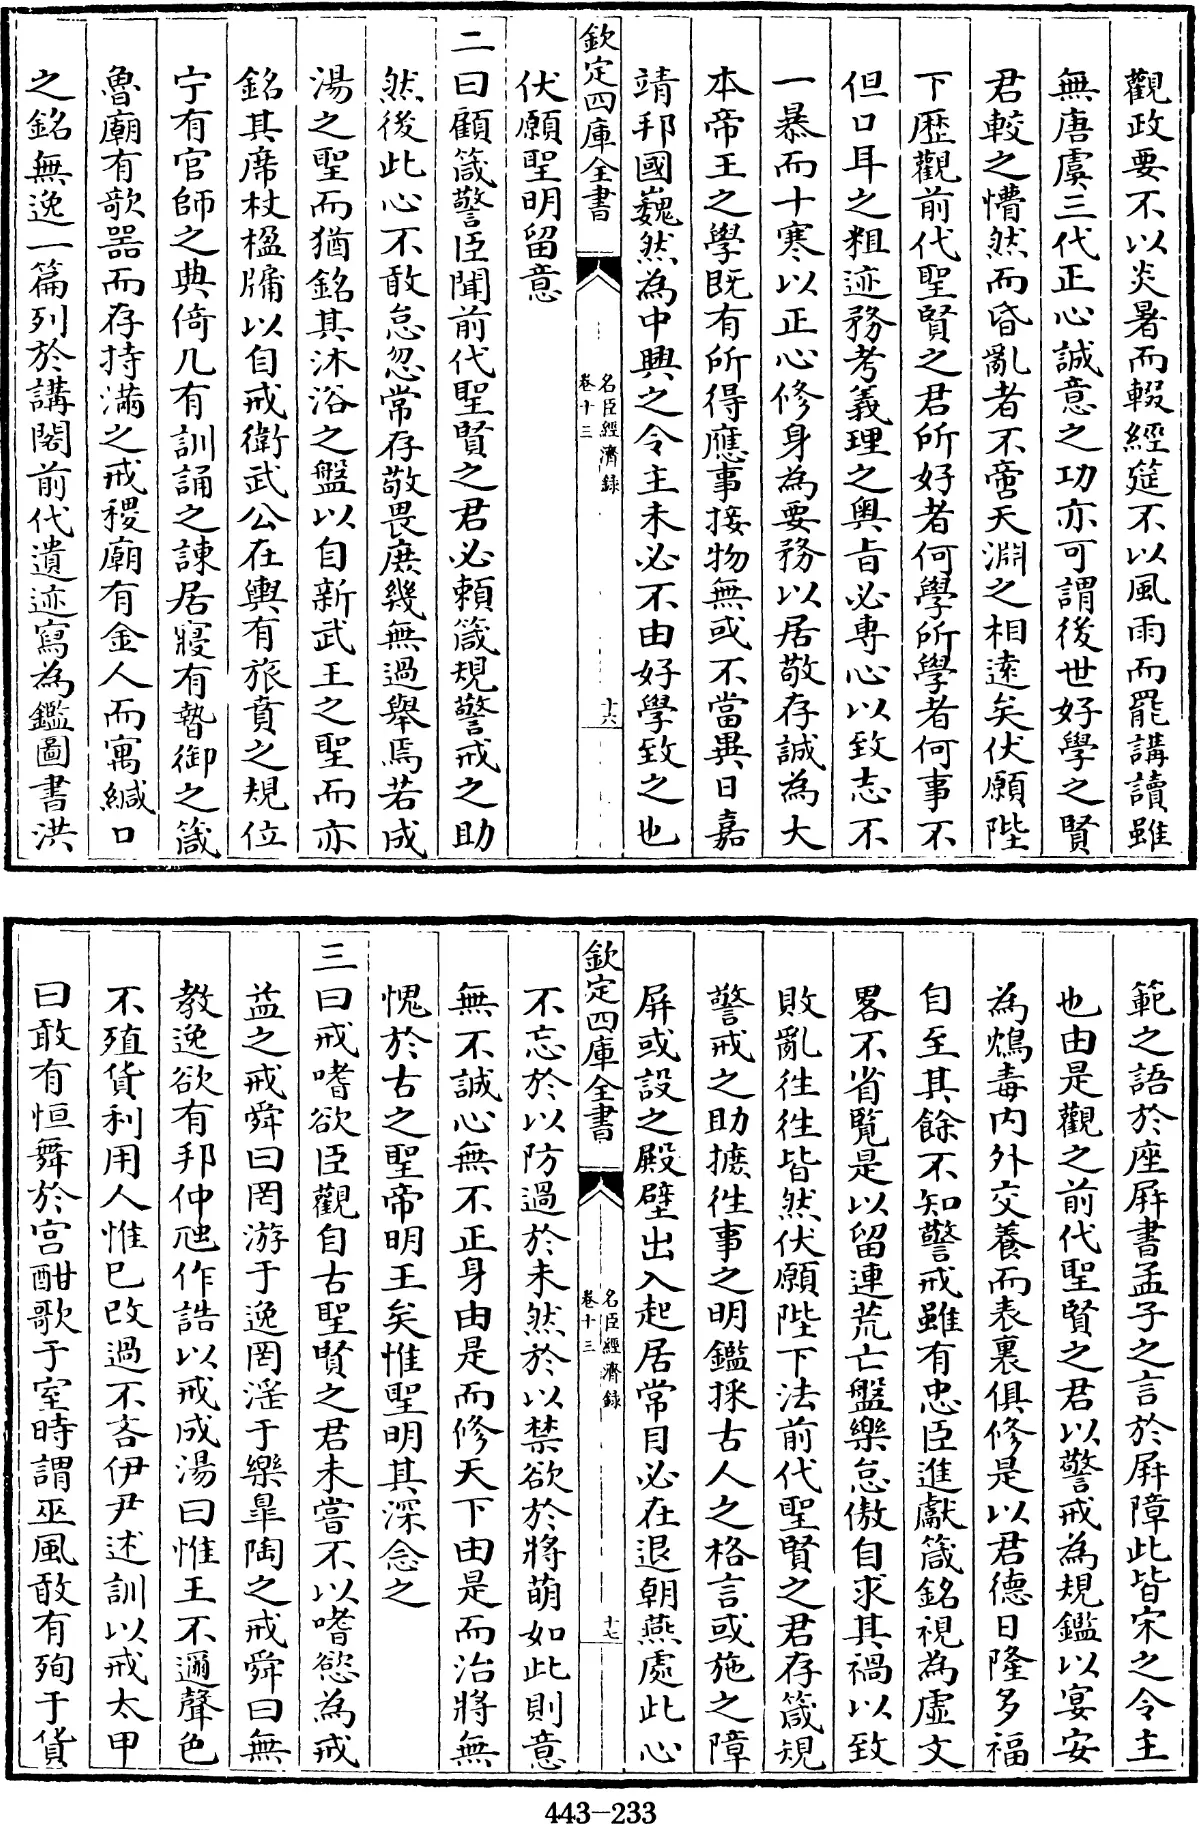 觀政要不以炎暑而輟經筵不以風雨而罷講讀雖
無唐虞三代正心誠意之功亦可謂後世好學之賢
君較之懵然而昏亂者不啻天淵之相逺矣伏願陛
下歴觀前代聖賢之君所好者何學所學者何事不
但口耳之粗迹務考義理之奥旨必專心以致志不
一暴而十寒以正心修身為要務以居敬存誠為大
本帝王之學既有所得應事接物無或不當異日嘉
靖邦國巍然為中興之令主未必不由好學致之也
欽定四庫全書
名臣經濟録
卷十三
十六
伏願聖明留意
二曰顧箴警臣聞前代聖賢之君必頼箴規警戒之助
然後此心不敢怠忽常存敬畏庶幾無過舉焉若成
湯之聖而猶銘其沐浴之盤以自新武王之聖而亦
銘其席杖楹牖以自戒衛武公在輿有旅賁之規位
宁有官師之典倚几有訓誦之諫居寢有暬御之箴
魯廟有欹器而存持滿之戒稷廟有金人而寓緘口
之銘無逸一篇列於講閣前代遺迹寫為鑑圖書洪
範之語於座屏書孟子之言於屏障此皆宋之令主
也由是觀之前代聖賢之君以警戒為規鑑以宴安
為鴆毒内外交養而表裏俱修是以君德日隆多福
自至其餘不知警戒雖有忠臣進獻箴銘視為虚文
畧不省覽是以留連荒亡盤樂怠傲自求其禍以致
敗亂往往皆然伏願陛下法前代聖賢之君存箴規
警戒之助摭往事之明鑑採古人之格言或施之障
屏或設之殿壁出入起居常目必在退朝燕處此心
欽定四庫全書
名臣經濟録
卷十三
十七
不忘於以防過於未然於以禁欲於將萌如此則意
無不誠心無不正身由是而修天下由是而治將無
愧於古之聖帝明王矣惟聖明其深念之
三曰戒嗜欲臣觀自古聖賢之君未嘗不以嗜慾為戒
益之戒舜曰罔游于逸罔淫于樂臯陶之戒舜曰無
教逸欲有邦仲虺作誥以戒成湯曰惟王不邇聲色
不殖貨利用人惟已改過不吝伊尹述訓以戒太甲
曰敢有恒舞於宫酣歌于室時謂巫風敢有殉于貨
443-233